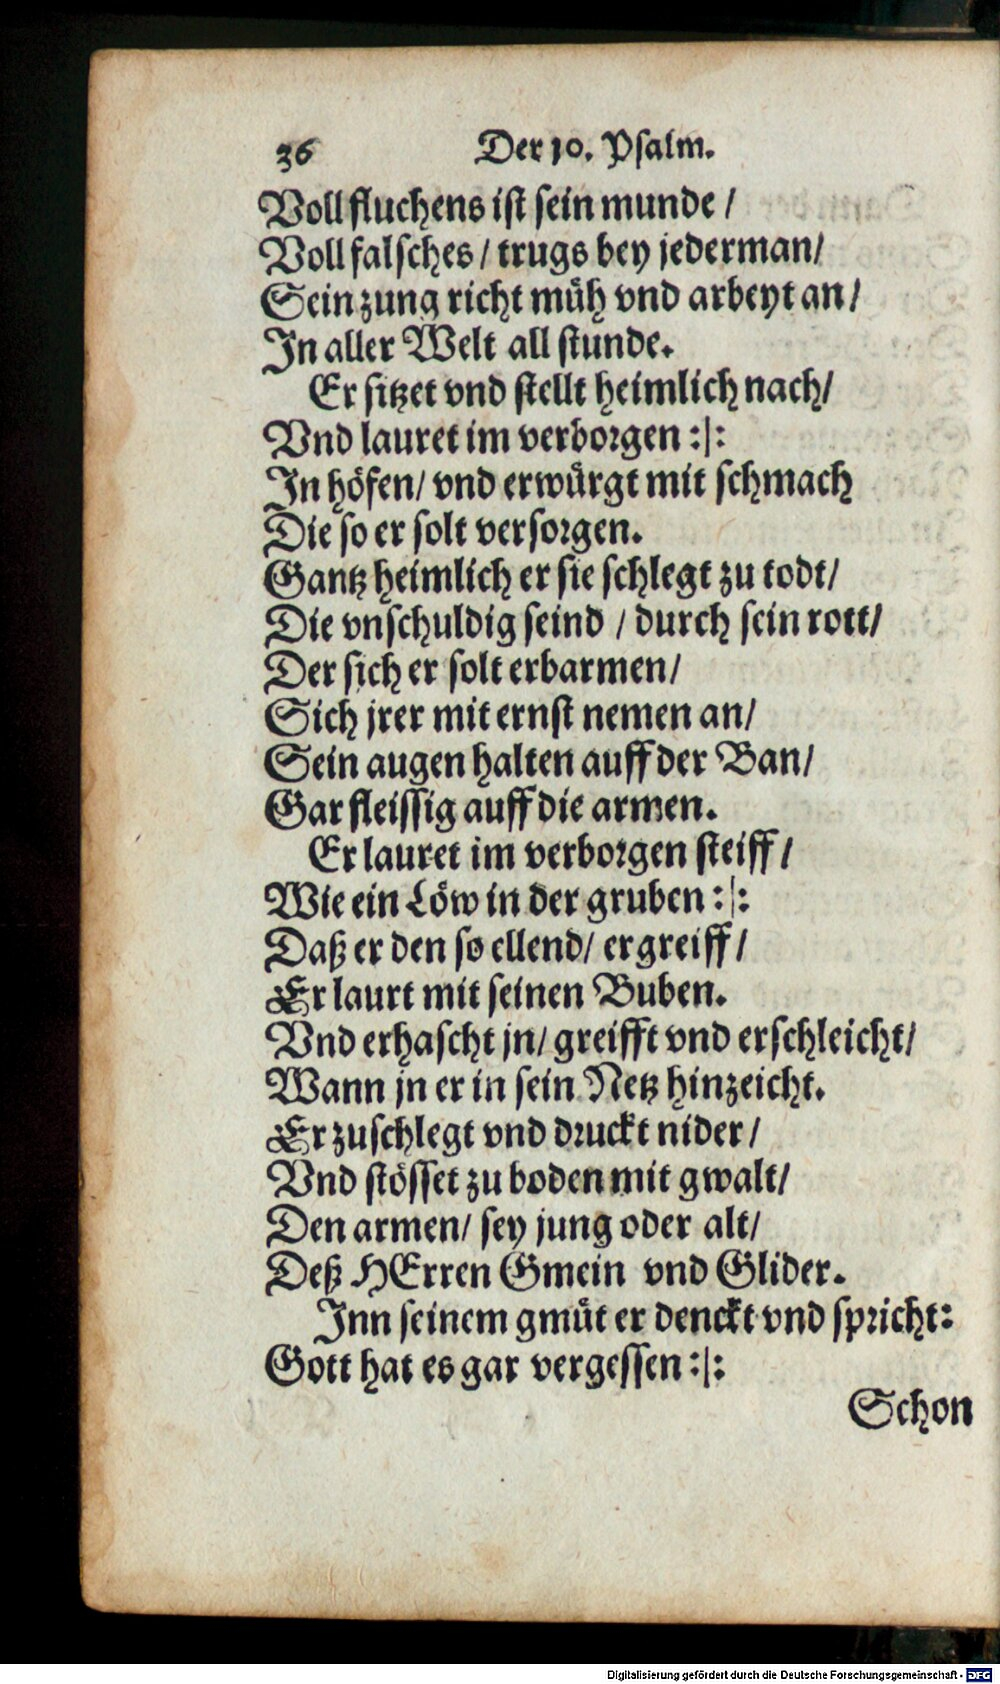 36 Der 10. Psalm.
Voll fluchens ist sein munde /
Voll falsches / trugs bey jederman /
Sein zung richt müh vnd arbeyt an /
In aller Welt all stunde.
Er sitzet vnd stellt heimlich nach /
Vnd lauret im verborgen :|:
In höfen / vnd erwürgt mit schmach
Die so er solt versorgen.
Gantz heimlich er sie schlegt zu todt /
Die vnschuldig seind / durch sein rott /
Der sich er solt erbarmen /
Sich jrer mit ernst nemen an /
Sein augen halten auff der Ban /
Gar fleissig auff die armen.
Er lauret im verborgen steiff /
Wie ein Löw in der gruben :|:
Daß er den so ellend / ergreiff /
Er laurt mit seinen Buben.
Vnd erhascht jn / greifft vnd erschleicht /
Wann jn er in sein Netz hinzeicht.
Er zuschlegt vnd druckt nider /
Vnd stösset zu boden mit gwalt /
Den armen / sey jung oder alt /
Deß HErren Gmein vnd Glider.
Inn seinem gmüt er denckt vnd spricht:
Gott hat es gar vergessen :|:
Schon
Digitalisierung gefördert durch die Deutsche Forschungsgemeinschaft - DFG